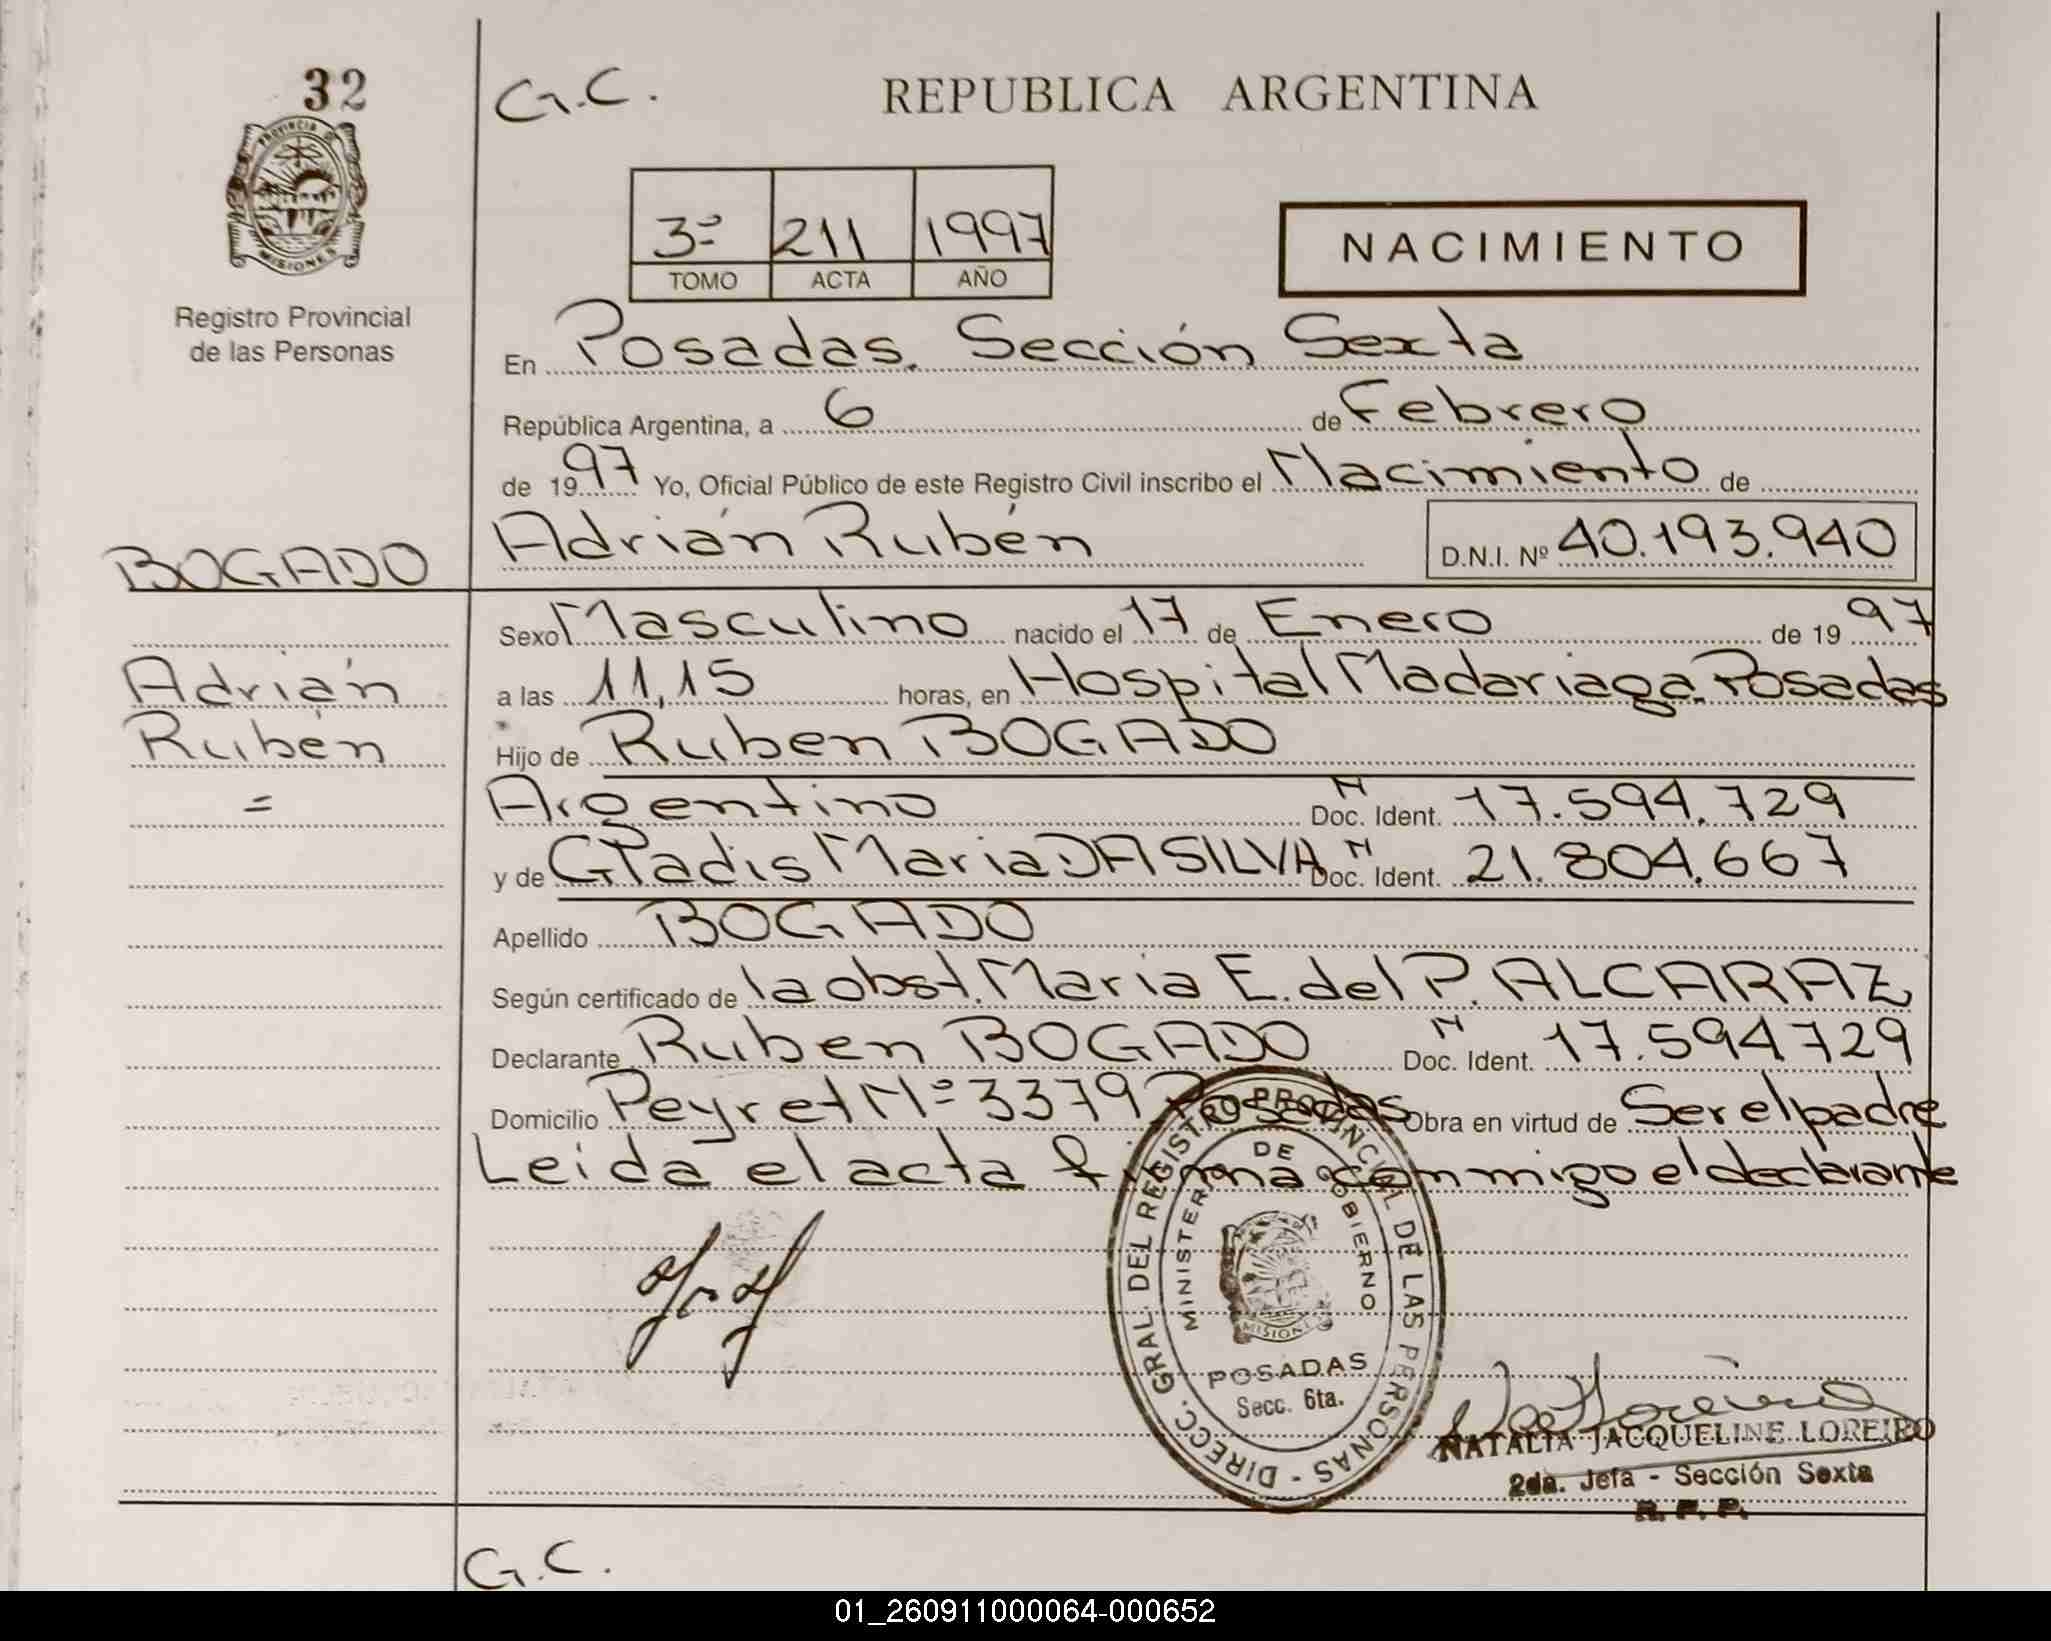 32
G.C.
REPUBLICA ARGENTINA
PROVINCIA DE MISIONES
3º 211 1997
TOMO ACTA AÑO
NACIMIENTO
Registro Provincial
de las Personas
En Posadas. Sección Sexta
República Argentina, a 6 de Febrero
de 1997 Yo, Oficial Público de este Registro Civil inscribo el Nacimiento de
Adrián Rubén D.N.I. Nº 40.193.940
BOGADO
Adrián
Rubén
=
Sexo Masculino nacido el 17 de Enero de 1997
a las 11,15 horas, en Hospital Madariaga. Posadas
Hijo de Ruben BOGADO
Argentino Doc. Ident. N 17.594.729
y de Gladis Maria DA SILVA Doc. Ident. N 21.804.667
Apellido BOGADO
Según certificado de la obst. Maria E. del P. ALCARAZ
Declarante Ruben BOGADO Doc. Ident. N 17.594729
Domicilio Peyret Nº 3379 Posadas Obra en virtud de Ser el padre
Leida el acta firma conmigo el declarante
DIRECC. GRAL. DEL REGISTRO PROVINCIAL DE LAS PERSONAS -
MINISTERIO DE GOBIERNO
MISIONES
POSADAS
Secc. 6ta.
NATALIA JACQUELINE LOREIRO
2da. Jefa - Sección Sexta
R. P. P.
G.C.
01_260911000064-000652